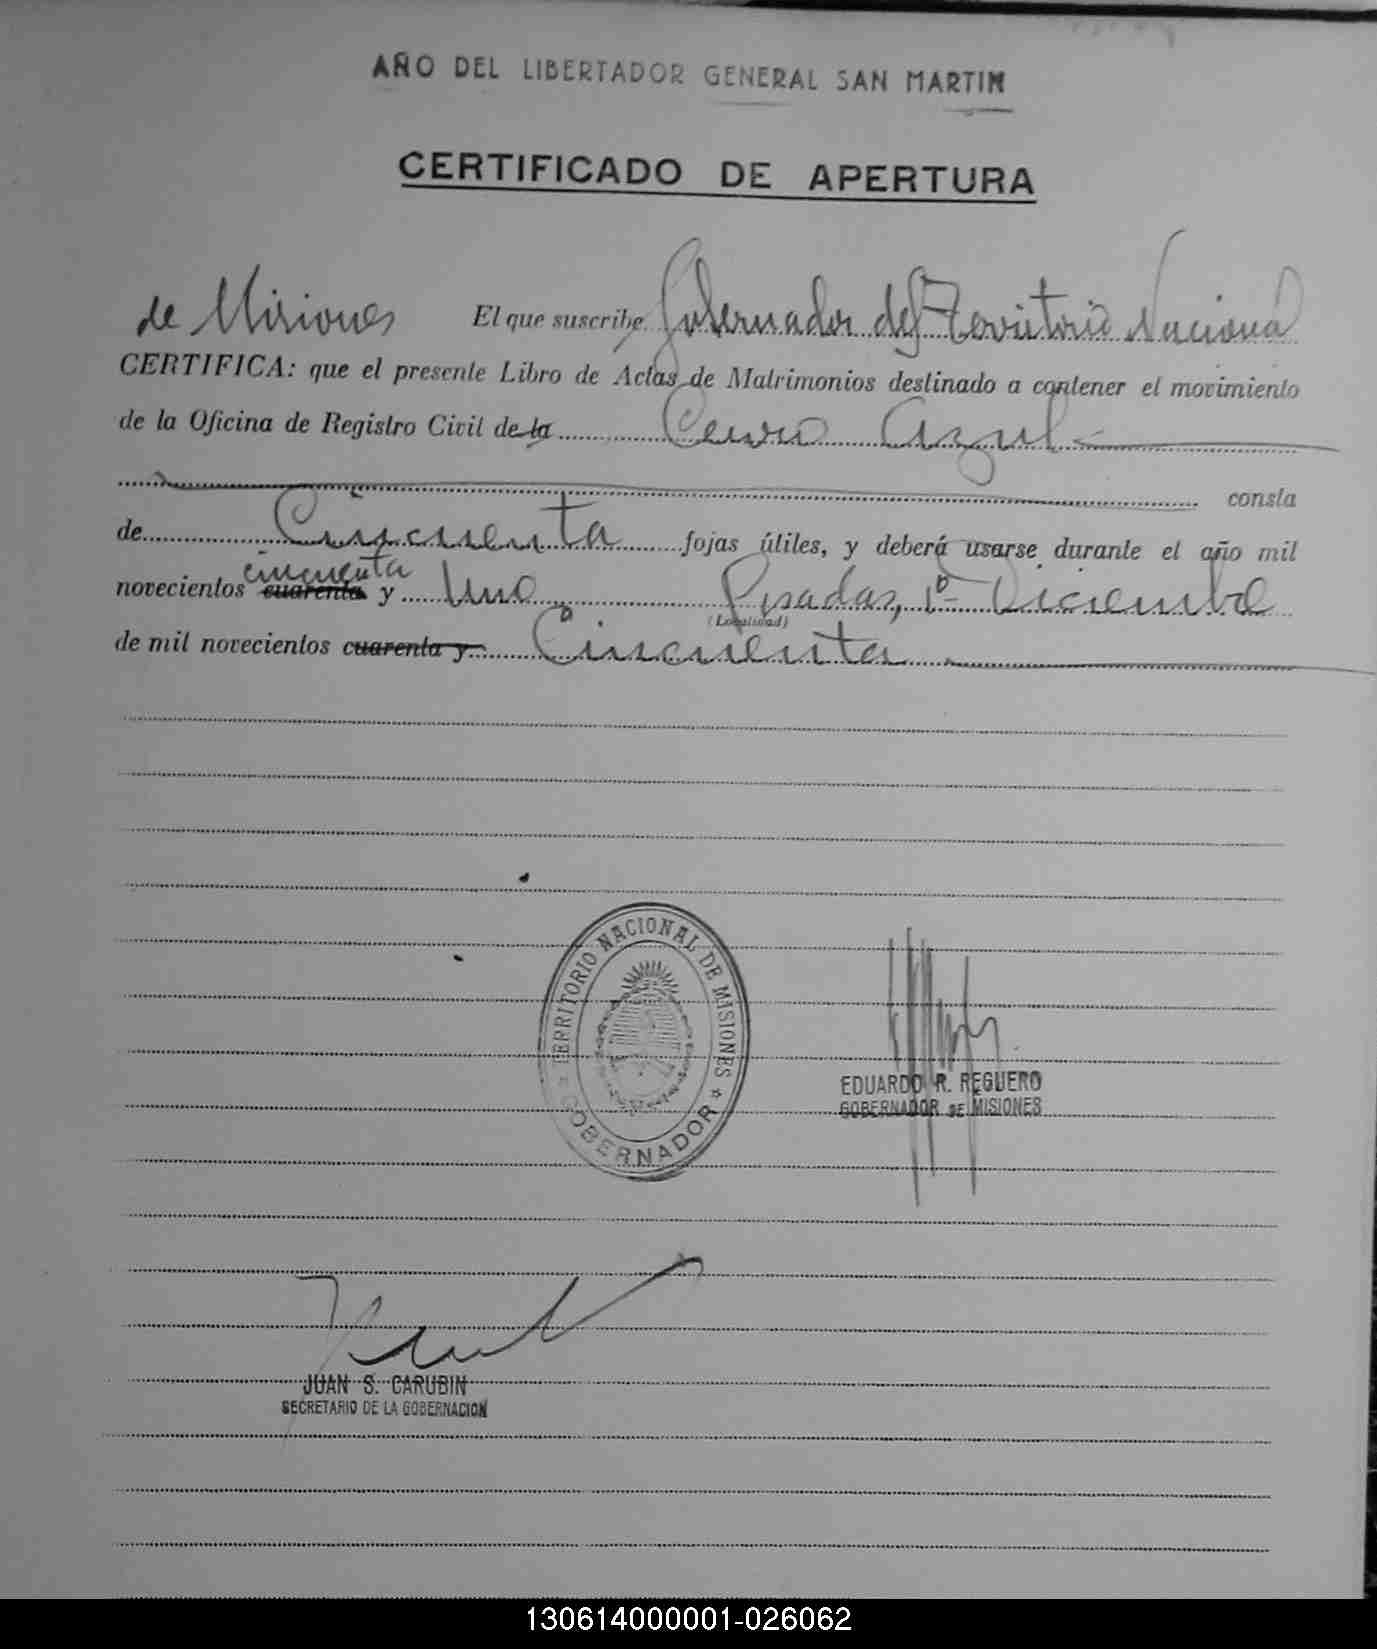 AÑO DEL LIBERTADOR GENERAL SAN MARTIN
CERTIFICADO DE APERTURA
de Misiones El que suscribe, Gobernador del Territorio Nacional
CERTIFICA: que el presente Libro de Actas de Matrimonios destinado a contener el movimiento
de la Oficina de Registro Civil de la Cerro Azul
consta
de Cincuenta fojas útiles, y deberá usarse durante el año mil
cincuenta
novecientos cuarenta y Uno Posadas, 1º Diciembre
(Localidad)
de mil novecientos cuarenta y Cincuenta
TERRITORIO NACIONAL DE MISIONES
GOBERNADOR
EDUARDO R. REGUERO
GOBERNADOR DE MISIONES
JUAN S. CARUBIN
SECRETARIO DE LA GOBERNACION
130614000001-026062